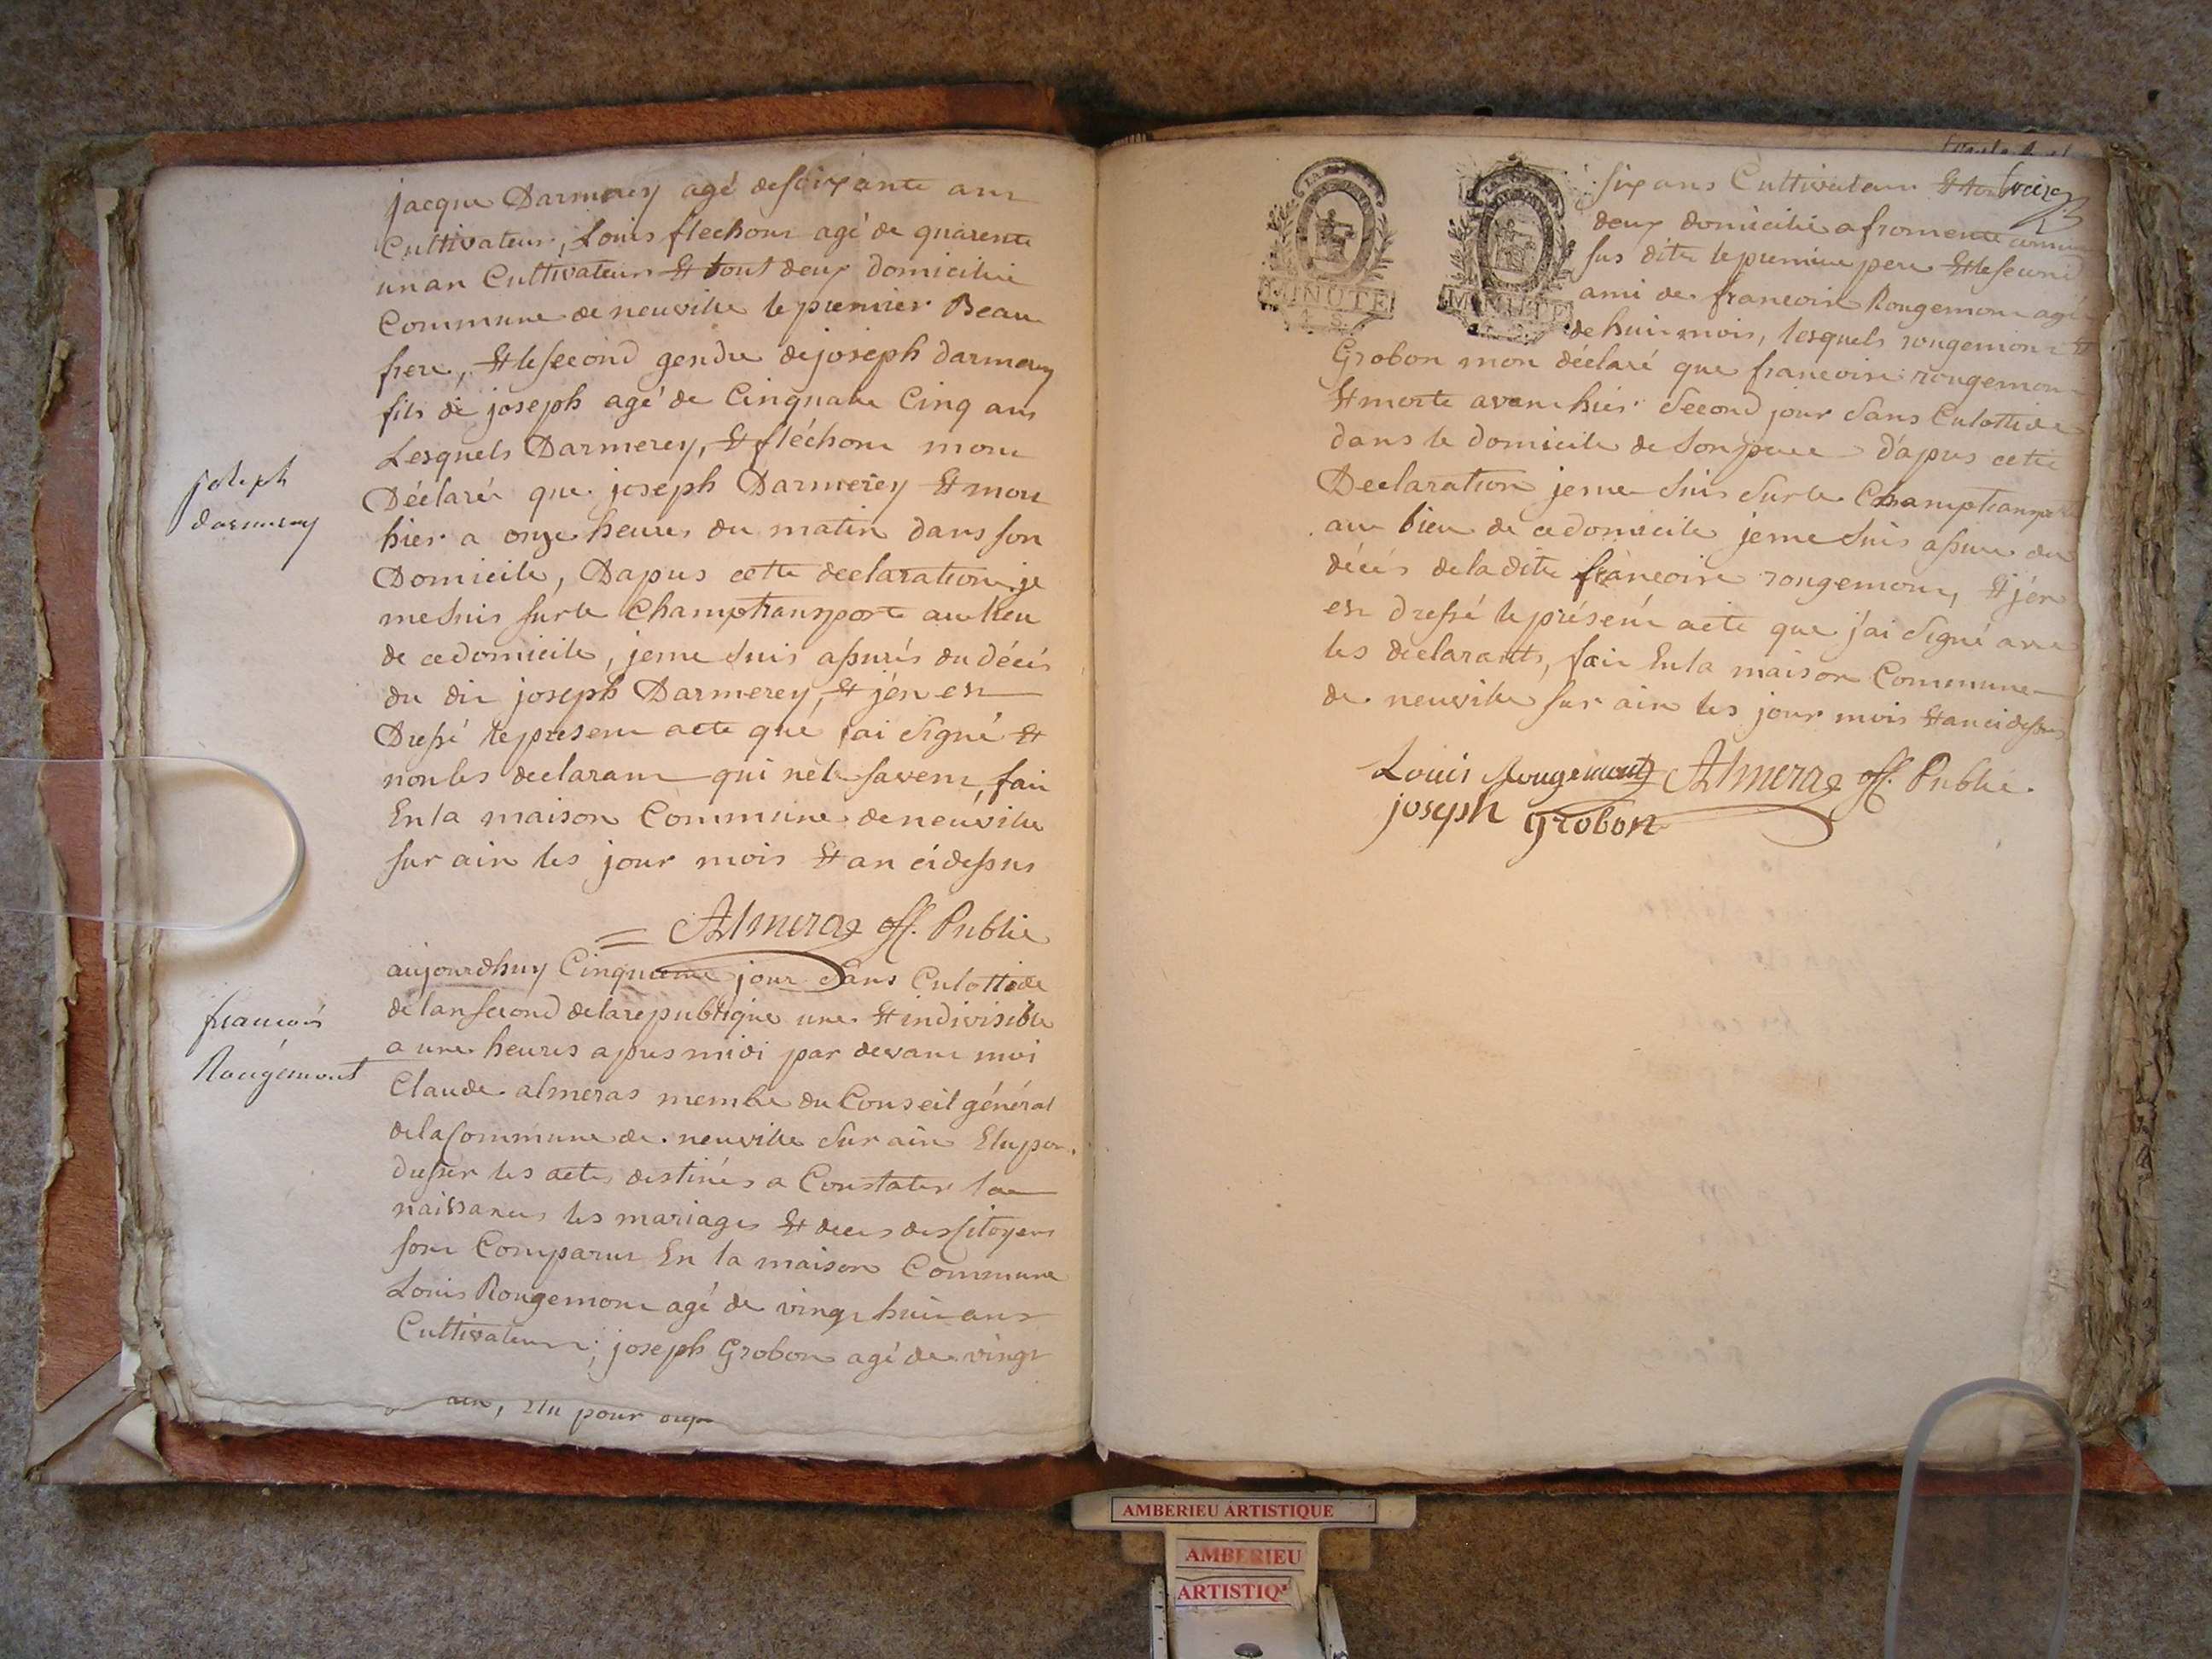 jacque Darmerey agé de soixante ans
Cultivateur, Louis flechon agé de quarente
un an Cultivateur Et tout deux domicilié
Commune de neuville le premier Beau
frere, Et le second gendre de joseph darmerey
fils de joseph agé de Cinquante Cinq ans
Lesquels Darmerey, Et fléchon mont
Déclaré que joseph Darmerey Et mort
hier a onze heures du matin dans son
Domicile, Dapres cette declaration je
me suis sur le Champ transporté au lieu
de ce domicile, je me suis assurés du décés
du dit joseph Darmerey, Et jén en
Dressé le présent acte que jai Signé Et
non les declarant qui nele savent, fait
En la maison Commune de neuville
sur ain les jour mois Et an ci dessus
Almeras off. Public
joseph
darmerey
aujourdhuy Cinquieme jour Sans Culottide
de lan second de la republique une Et indivisible
a une heures apres midi par devant moi
Claude almeras membre du Conseil général
de la Commune de neuville Sur ain Elu pour
dresser les actes destinés a Constater les
naissances les mariages Et deces des Citoyens
sont Comparut En la maison Commune
Louis Rougemont agé de vingt huit ans
Cultivateur; joseph Grobon agé de vingt
francois
Rougémont
ain, élu pour
MINUTE
MINUTE
six ans Cultivateur Et tou
deux domicilié a fromente
sus dite le premier pere Et le second
ami de francoise Rougemont agé
de huit mois, lesquels rougemont Et
Grobon mon déclaré que francoise rougemont
Et morte avant hier Second jour Sans Culottide
dans le domicile de Son pere d'apres cette
Declaration je me Suis Sur le Champ transporté
au lieu de ce domicile je me Suis assure du
décés de la dite francoise rougemont, Et jén
en dressé le présent acte que j'ai Signé avec
les declarants, fait En la maison Commune
de neuville sur ain les jour mois Et an ci dessus
Louis Rougemont Almeras off. Public.
joseph grobon
AMBERIEU ARTISTIQUE
AMBERIEU
ARTISTIQ